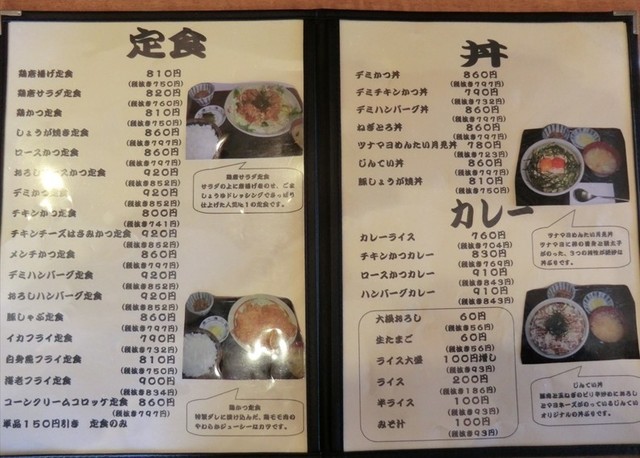 定食
鶏唐揚げ定食 810円
(税抜き750円)
鶏唐サラダ定食 820円
(税抜き760円)
鶏かつ定食 810円
(税抜き750円)
しょうが焼き定食 860円
(税抜き797円)
ロースかつ定食 860円
(税抜き797円)
おろしロースかつ定食 920円
(税抜き852円)
デミかつ定食 920円
(税抜き852円)
チキンかつ定食 800円
(税抜き741円)
チキンチーズはさみかつ定食 920円
(税抜き852円)
メンチかつ定食 860円
(税抜き797円)
デミハンバーグ定食 920円
(税抜き852円)
おろしハンバーグ定食 920円
(税抜き852円)
豚しゃぶ定食 860円
(税抜き797円)
イカフライ定食 790円
(税抜き732円)
白身魚フライ定食 810円
(税抜き750円)
海老フライ定食 900円
(税抜き834円)
コーンクリームコロッケ定食 860円
(税抜き797円)
単品150円引き 定食のみ
鶏唐サラダ定食
サラダの上に唐揚げをのせ、ごま
しょうゆドレッシングでさっぱり
仕上げた人気No1の定食です。
鶏かつ定食
特製ダレに漬け込んだ、鶏モモ肉の
やわらかジューシーなカツです。
丼
デミかつ丼 860円
(税抜き797円)
デミチキンかつ丼 790円
(税抜き732円)
デミハンバーグ丼 860円
(税抜き797円)
ねぎとろ丼 860円
(税抜き797円)
ツナマヨめんたい月見丼 780円
(税抜き723円)
じんてい丼 860円
(税抜き797円)
豚しょうが焼丼 810円
(税抜き750円)
ツナマヨめんたい月見丼
カレー
カレーライス 760円
(税抜き704円)
チキンかつカレー 830円
(税抜き769円)
ロースかつカレー 910円
(税抜き843円)
ハンバーグカレー 910円
(税抜き843円)
大根おろし 60円
(税抜き56円)
生たまご 60円
(税抜き56円)
ライス大盛 100円増し
(税抜き93円)
ライス 200円
(税抜き186円)
半ライス 100円
(税抜き93円)
みそ汁 100円
(税抜き93円)
じんてい丼
豚肉と玉ねぎのピリ辛炒めにおろし
とマヨネーズがのっているじんてい
オリジナルの丼ぶりです。